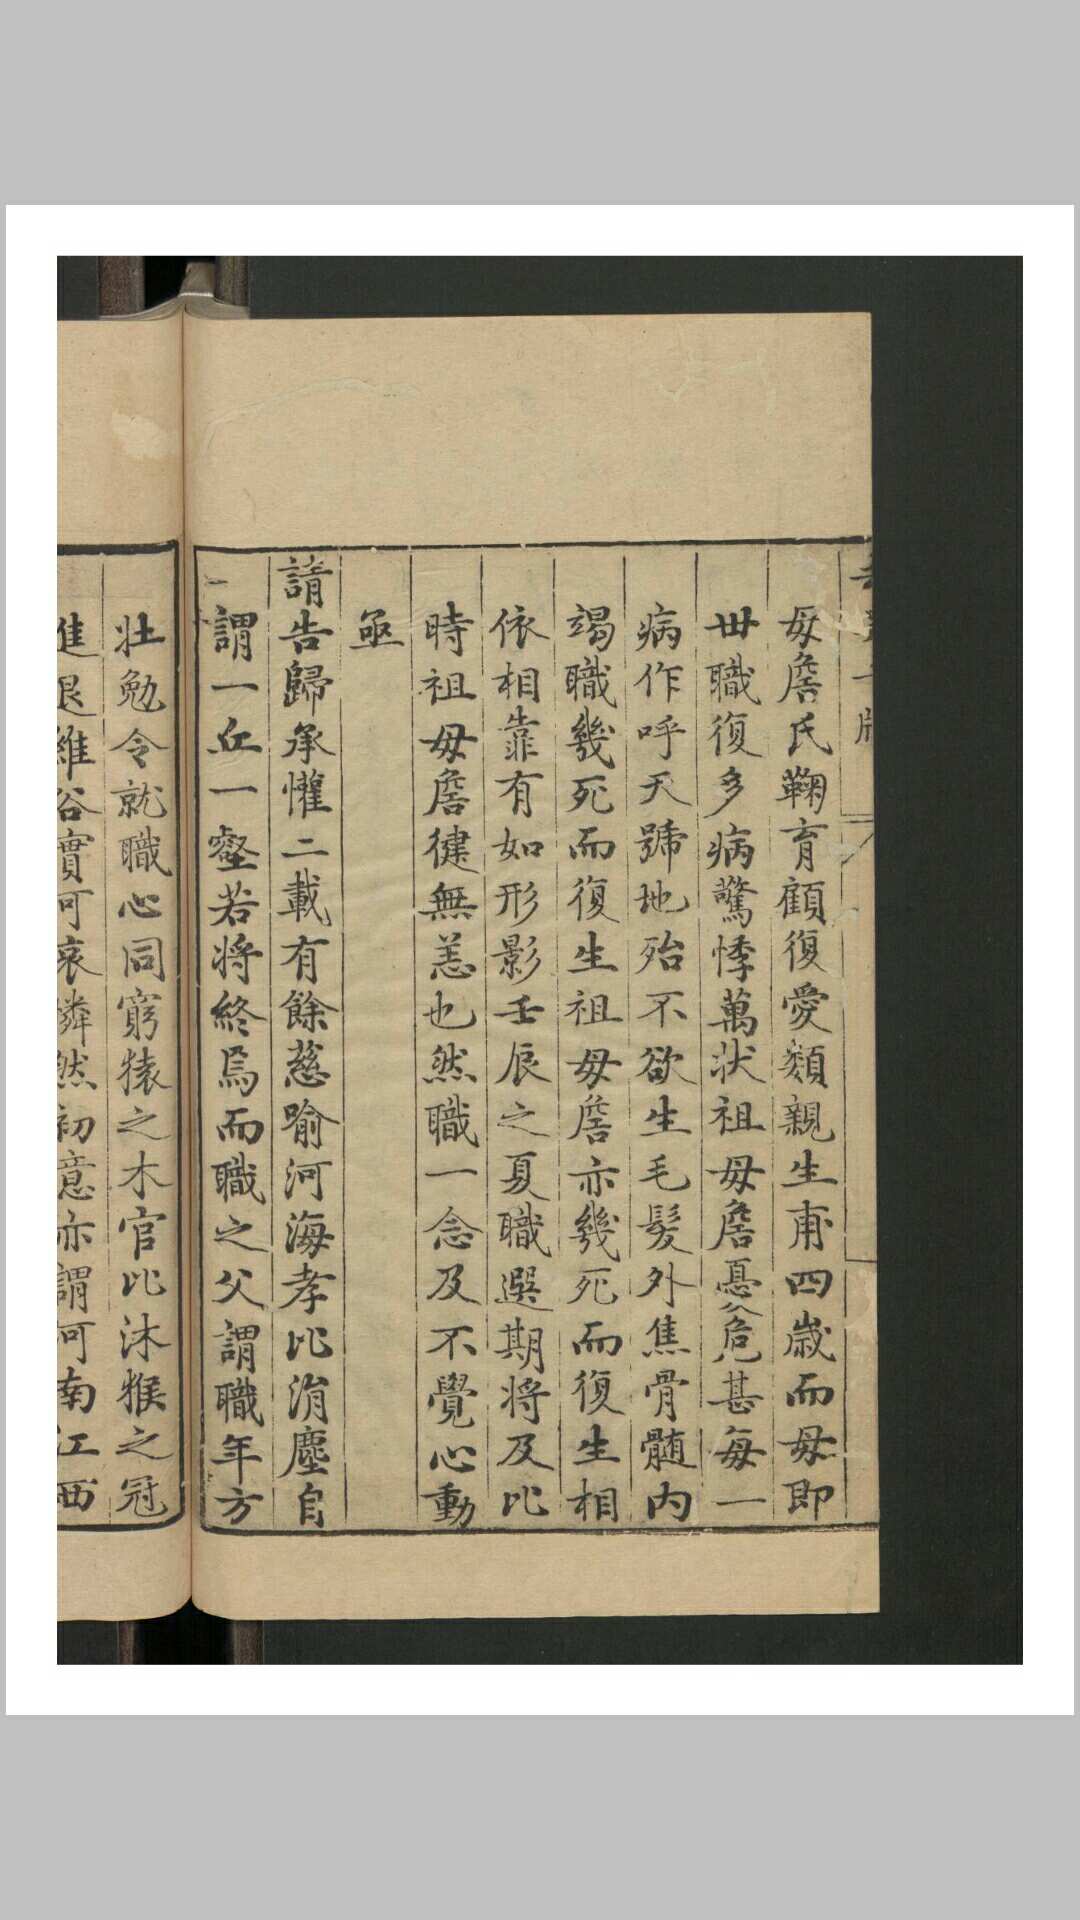 母詹氏鞠育顧復愛類親生甫四歲而母即
丗職復多病驚悸萬狀祖母詹憂危甚每一
病作呼天號地殆不欲生毛髮外焦骨髄内
竭職幾死而復生祖母詹亦幾死而復生相
依相靠有如形影壬辰之夏職選期將及比
時祖母詹徤無恙也然職一念及不覺心動
亟
請告歸承懽二載有餘慈喻河海孝比涓塵自
謂一丘一壑若將終焉而職之父謂職年方
壮勉令就職心同窮猿之木官比沐猴之冠
進退維谷實可哀憐然初意亦謂河南江西